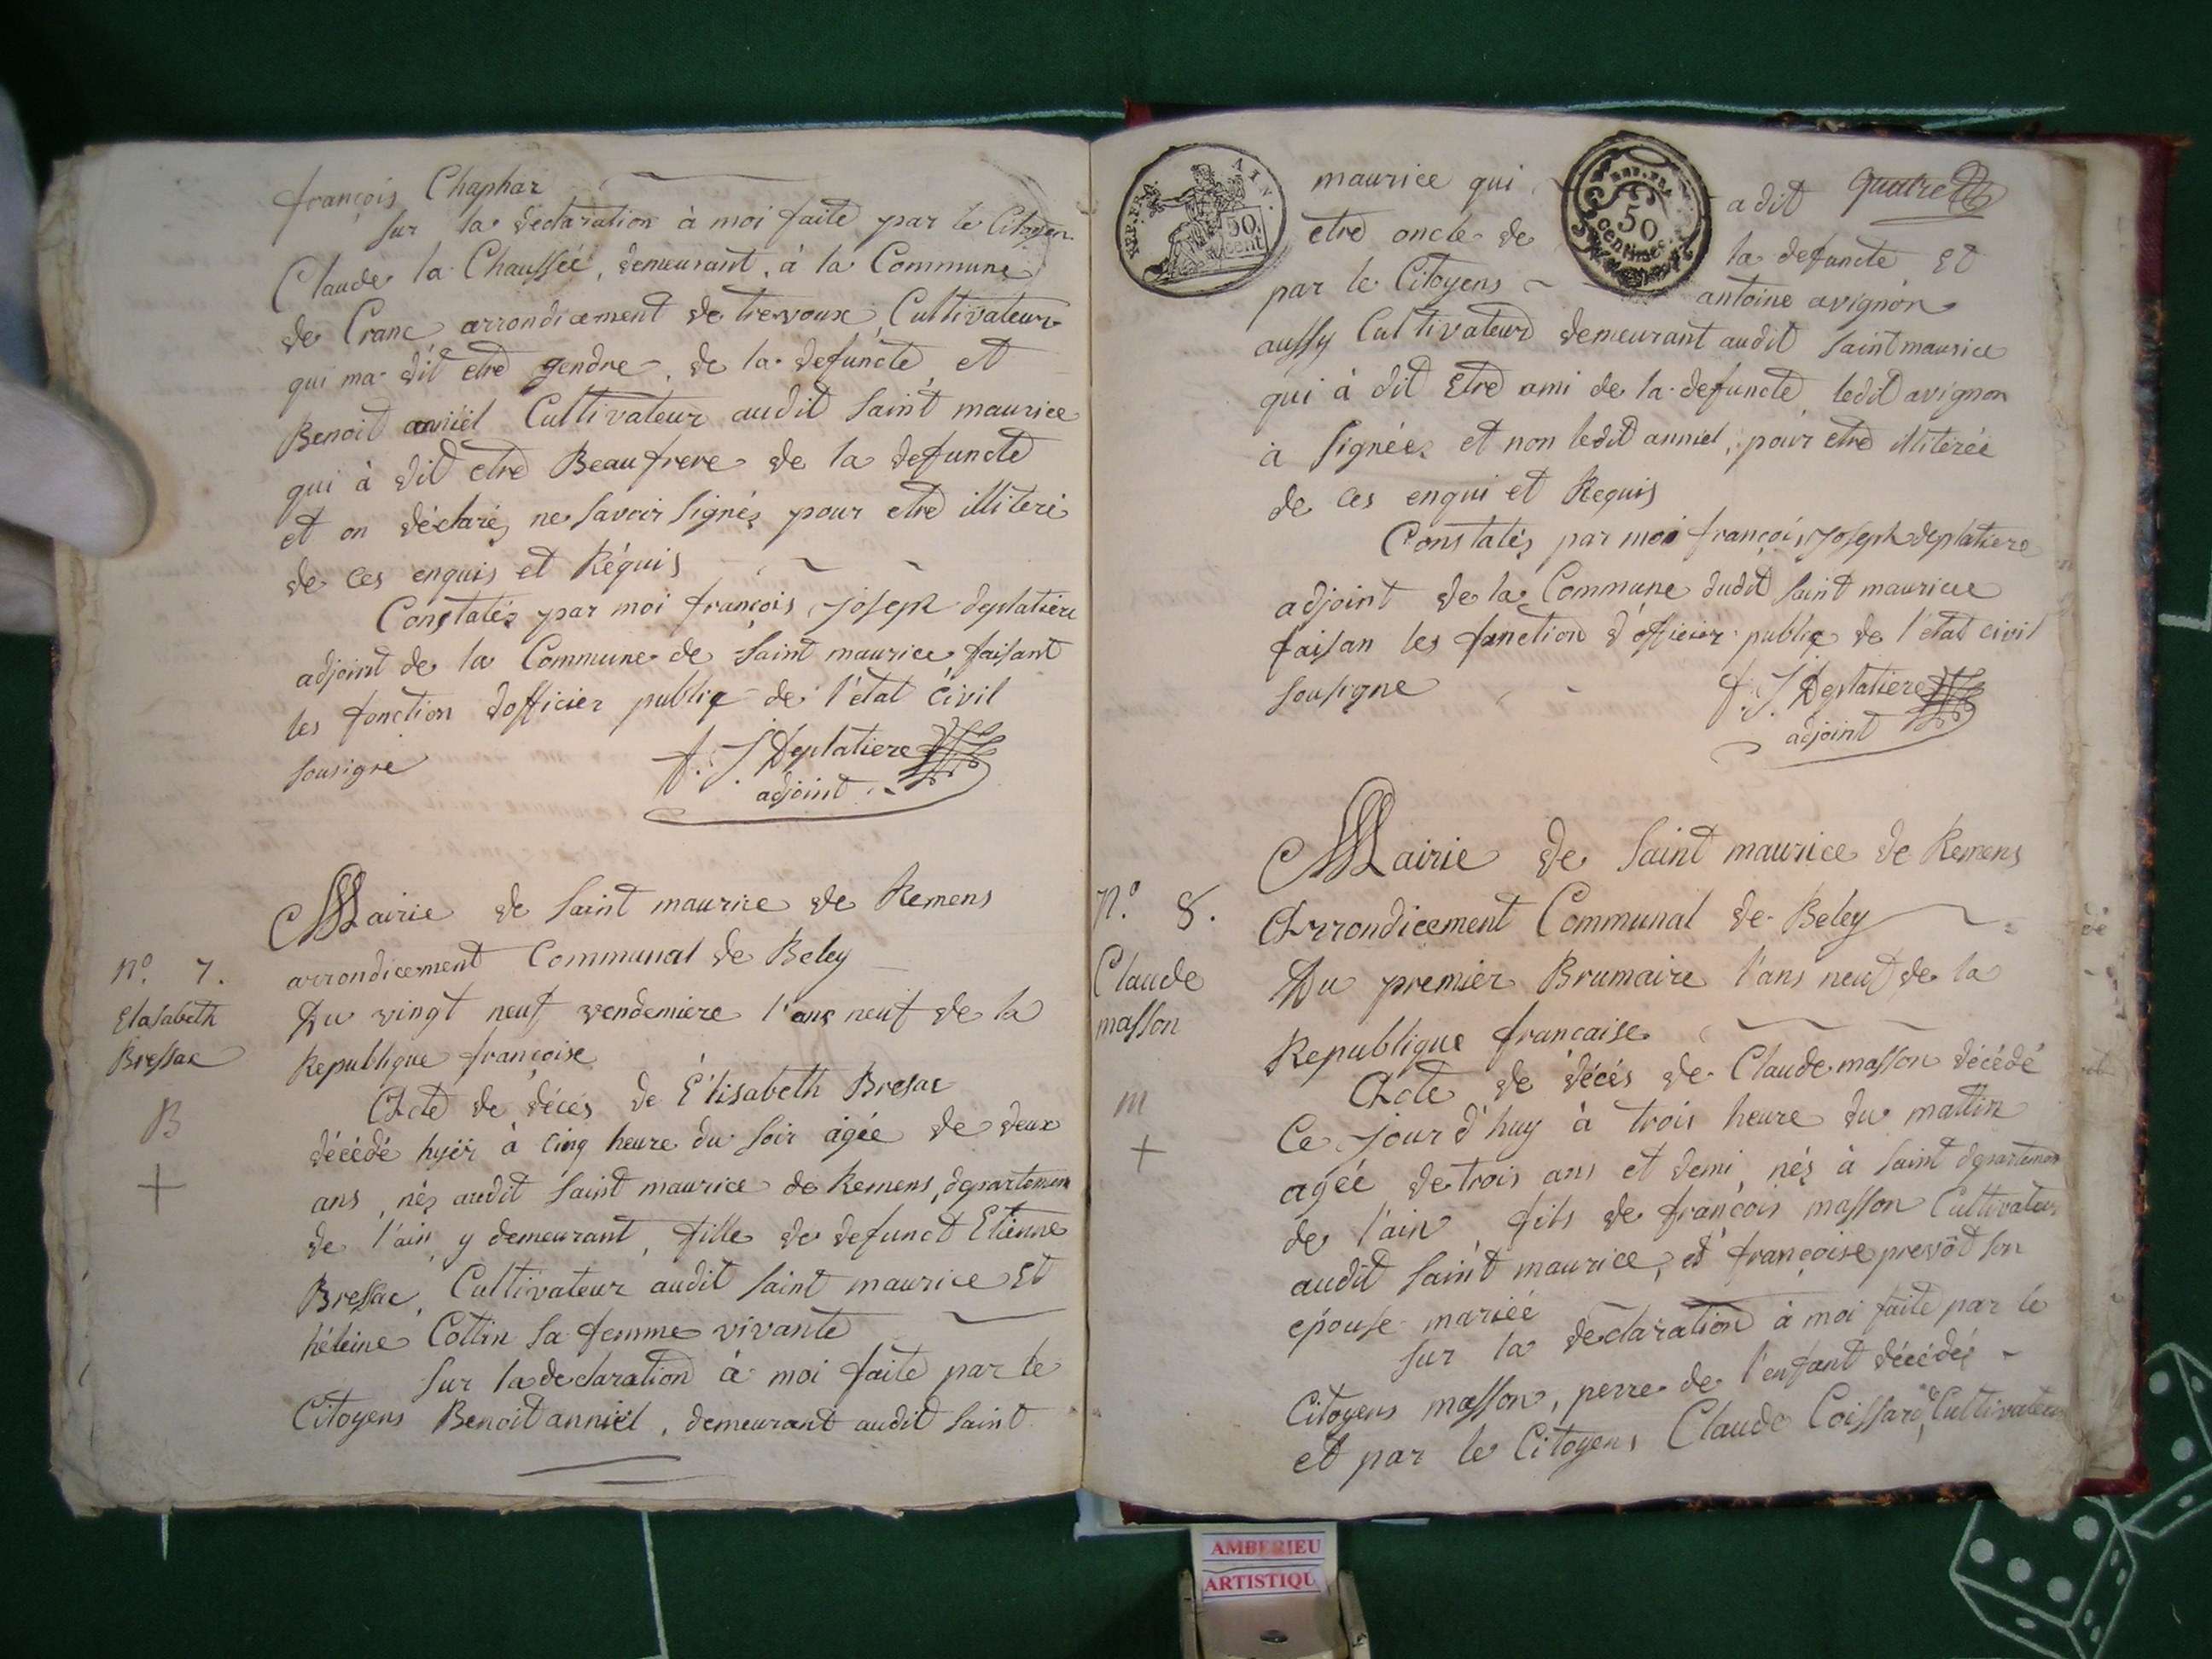 françois Chaphar
sur la declaration à moi faite par le Citoyen
Claude la Chaussée, demeurant, à la Commune
de Cranc arrondicement de trevoux, Cultivateur
qui ma dit etre gendre, de la defuncte, et
Benoit anniel Cultivateur audit Saint maurice
qui à dit etre Beaufrere de la defuncte
et on déclaréz ne savoir signéz pour etre illiteré
de ces enquis et Réquis
Constatéz par moi françois joseph deplatiere
adjoint de la Commune de Saint maurice faisant
les fonction dofficier publiq de l'état civil
sousigne
f. J. Deplatiere
adjoint
Mairie de Saint maurice de Remens
arrondicement Communal de Beley
N.º 7.
Elasabeth
Bressac
B
+
Du vingt neuf vendemiere l'ans neuf de la
Republique françoise
Acte de décés de Elisabeth Bresac
décédé hyér à cinq heure du soir agée de deux
ans, néz audit Saint maurice de Remens, departement
de l'ain, y demeurant, fille de defunct Etienne
Bressac, Cultivateur audit Saint maurice Et
héleine Cottin sa femme vivante
Sur la declaration à moi faite par le
Citoyens Benoit anniel, demeurant audit Saint
REP.FRA.
50
cent
REP.FRA
50
centimes
quatre
maurice qui a dit
etre oncle de la defuncte Et
par le Citoyens antoine avignon
aussy Cultivateur demeurant audit Saint maurice
qui à dit Etre ami de la defuncte, ledit avignon
à Signéez et non ledit anniel, pour etre illiterée
de ces enqui et Requis
Constatéz par moi françois Joseph deplatiere
adjoint de la Commune dudit Saint maurice
faisan les fonction d'officier publiq de l'etat civil
sousigne
f. J. Deplatiere
adjoint
Mairie de Saint maurice de Remens
N.º 8.
Claude
masson
m
+
Arrondicement Communal de Beley
Du premier Brumaire l'ans neuf de la
Republique francaise
Acte de décés de Claude masson décédé
Ce jour d'huy à trois heure du mattin
agée de trois ans et demi, néz à Saint departemen
de l'ain, fils de françois masson Cultivateur
audit Saint maurice, et françoise prevôt son
epouse mariée
sur la declaration à moi faite par le
Citoyens masson, perre de l'enfant décédéz
et par le Citoyens Claude Coissard, Cultivateur
AMBERIEU
ARTISTIQU